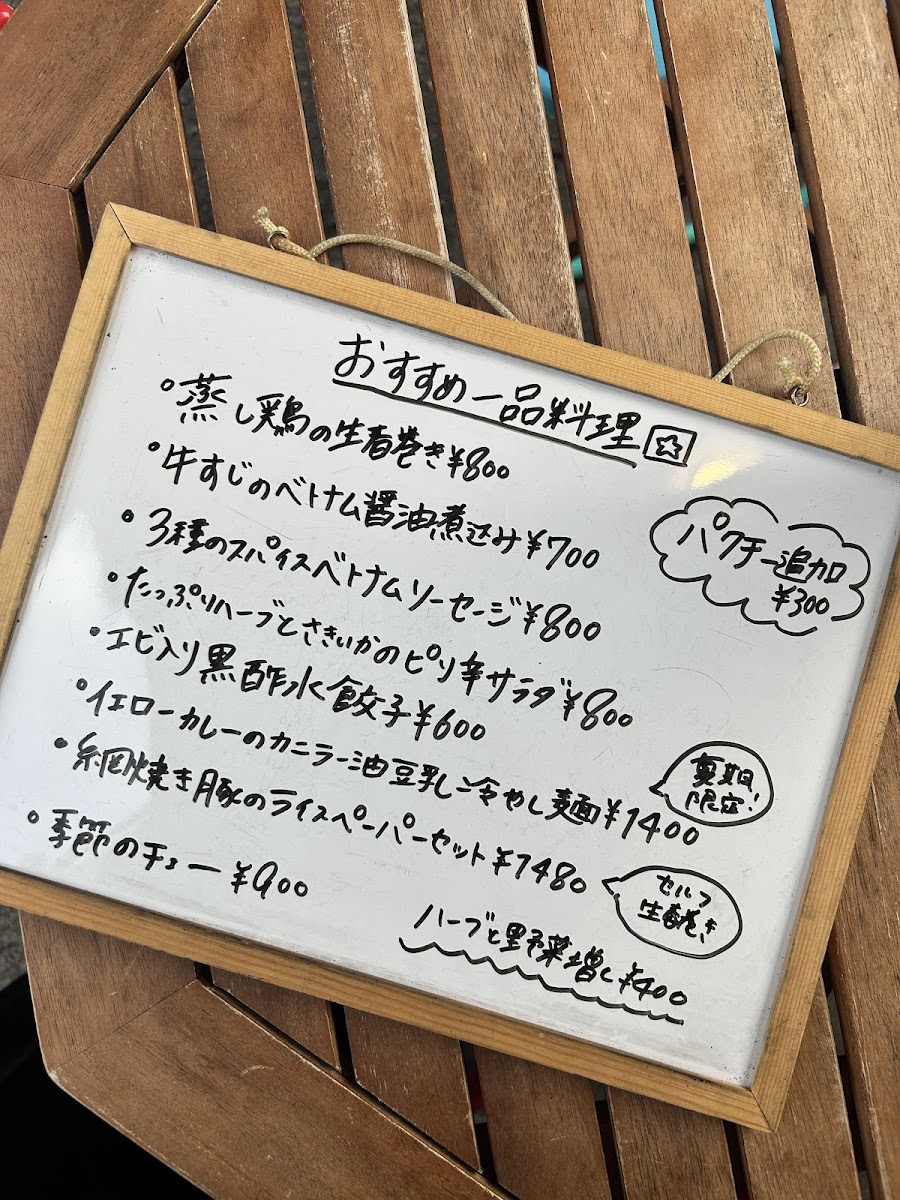 おすすめ一品料理
・蒸し鶏の生春巻き¥800
・牛すじのベトナム醤油煮込み¥700
・3種のスパイスベトナムソーセージ¥800
・たっぷりハーブとさきいかのピリ辛サラダ¥800
・エビ入り黒酢水餃子¥600
・イエローカレーのカニラー油豆乳冷やし麺¥1400
・網焼き豚のライスペーパーセット¥1480
・季節のチェー¥900
パクチー追加
¥300
夏期
限定!
セルフ
生春巻き
ハーブと野菜増し¥400